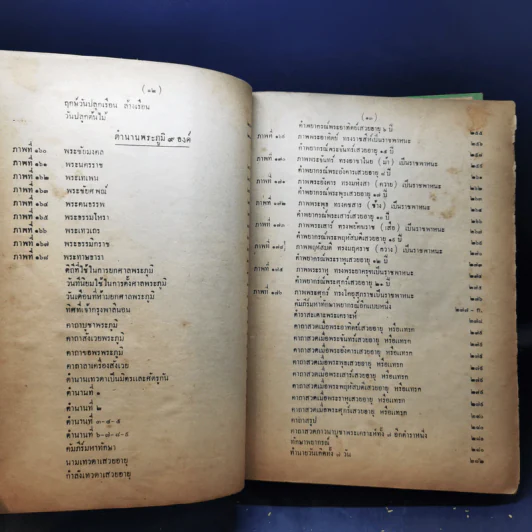 (๑๒)
ฤกษ์วันปลูกเรือน ลำเรือน
วันปลูกต้นไม้
ตำนานพระภูมิ ๙ องค์
ภาพที่ ๑๖๐ พระชัยมงคล
ภาพที่ ๑๖๑ พระนครราช
ภาพที่ ๑๖๒ พระเทเพน
ภาพที่ ๑๖๓ พระชัยศพณ์
ภาพที่ ๑๖๔ พระคนธรรพ
ภาพที่ ๑๖๕ พระธรรมโหรา
ภาพที่ ๑๖๖ พระเทวเถร
ภาพที่ ๑๖๗ พระธรรมิกราช
ภาพที่ ๑๖๘ พระทาษธารา
ดิถีที่ใช้ในการยกศาลพระภูมิ
วันที่นิยมใช้ในการตั้งศาลพระภูมิ
วันเดือนที่ห้ามยกศาลพระภูมิ
ทิศที่เจ้ากรุงพาลีนอน
คาถาบูชาพระภูมิ
คาถาสังเวยพระภูมิ
คาถาขอพรพระภูมิ
คาถาลาเครื่องสังเวย
ตำนานเทวดาเป็นมิตรและศัตรูกัน
ตำนานที่ ๑
ตำนานที่ ๒
ตำนานที่ ๓-๔-๕
ตำนานที่ ๖-๗-๘-๙
คัมภีร์มหาทักษา
นามเทวดาเสวยอายุ
กำลังเทวดาเสวยอายุ
(๑๓)
คำพยากรณ์พระอาทิตย์เสวยอายุ ๖ ปี
ภาพพระอาทิตย์ ทรงราชสีห์เป็นราชพาหนะ
คำพยากรณ์พระจันทร์เสวยอายุ ๑๕ ปี
ภาพที่ ๑๗๐ ภาพพระจันทร์ ทรงอาชาไนย (ม้า) เป็นราชพาหนะ
คำพยากรณ์พระอังคารเสวยอายุ ๘ ปี
ภาพที่ ๑๗๑ ภาพพระอังคาร ทรงมหิงสา (ควาย) เป็นราชพาหนะ
คำพยากรณ์พระพุธเสวยอายุ ๑๗ ปี
ภาพที่ ๑๗๒ ภาพพระพุธ ทรงคชสาร (ช้าง) เป็นราชพาหนะ
คำพยากรณ์พระเสาร์เสวยอายุ ๑๐ ปี
ภาพที่ ๑๗๓ ภาพพระเสาร์ ทรงพยัคฆราช (เสือ) เป็นราชพาหนะ
คำพยากรณ์พระพฤหัสบดีเสวยอายุ ๑๙ ปี
ภาพที่ ๑๗๔ ภาพพฤหัสบดี ทรงมฤคราช (กวาง) เป็นราชพาหนะ
คำพยากรณ์พระราหูเสวยอายุ ๑๒ ปี
ภาพที่ ๑๗๕ ภาพพระราหู ทรงพยาครุฑเป็นราชพาหนะ
คำพยากรณ์พระศุกร์เสวยอายุ ๒๑ ปี
ภาพที่ ๑๗๖ ภาพพระศุกร์ ทรงโคอุสุภราชเป็นราชพาหนะ
คัมภีร์มหาทักษาพยากรณ์อีกแบบหนึ่ง
ตำราสะเดาะพระเคราะห์
คาถาสวดเมื่อพระอาทิตย์เสวยอายุ หรือแทรก
คาถาสวดเมื่อพระจันทร์เสวยอายุ หรือแทรก
คาถาสวดเมื่อพระอังคารเสวยอายุ หรือแทรก
คาถาสวดเมื่อพระพุธเสวยอายุ หรือแทรก
คาถาสวดเมื่อพระเสาร์เสวยอายุ หรือแทรก
คาถาสวดเมื่อพระพฤหัสบดีเสวยอายุ หรือแทรก
คาถาสวดเมื่อพระราหูเสวยอายุ หรือแทรก
คาถาสวดเมื่อพระศุกร์เสวยอายุ หรือแทรก
คาถาสรูป
คาถาสวดภาวนาบูชาพระเคราะห์ทั้ง ๘ อีกตำราหนึ่ง
ทักษาพยากรณ์
ทำนายวันเกิดทั้ง ๗ วัน